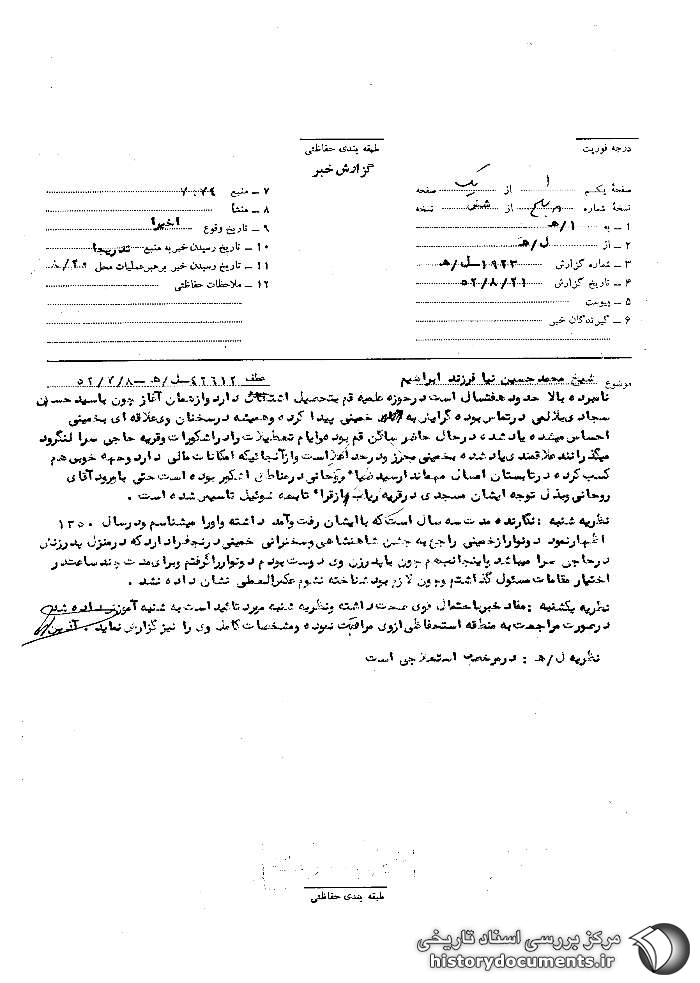 درجه فوریت
طبقه بندی حفاظتی
گزارش خبر
صفحهٔ یکم ۱ از یک صفحه
نسخهٔ شماره پنج از شش نسخه
۱ – به ۱/هـ
۲ – از ل/هـ
۳ – شماره گزارش ۱۹۲۳-ل/هـ
۴ – تاریخ گزارش ۵۲/۸/۲۱
۵ – پیوست
۶ – گیرندگان خبر
۷ – منبع ۷۰۷۴
۸ – منشأ
۹ – تاریخ وقوع اخیرا
۱۰ – تاریخ رسیدن خبر به منبع تدریجا
۱۱ – تاریخ رسیدن خبر برهبر عملیات محل
۱۲ – ملاحظات حفاظتی
موضوع شیخ محمدحسین نیا فرزند ابراهیم عطف ۴۲۶۱۲-ل/ه-۵۲/۲/۸
نامبرده بالا حدود هفتسال است در حوزه علمیه قم بتحصیل اشتغال دارد و از همان آغاز چون با سید حسن
سجادی بلالمی در تماس بوده گرایش به خمینی پیدا کرده و همیشه در سخنان وی علاقه ای بخمینی
احساس میشده یاد شده در حال حاضر ساکن قم بوده و ایام تعطیلات را در اشکورات و قریه حاجی سرا لنگرود
میگذراند علاقمندی یاد شده بخمینی محرز و در حد اعلا است و از آنجائیکه امکانات مالی دارد وجهه خوبی هم
کسب کرده در تابستان امسال مهماندار سید ضیاء روحانی در مناطق اشکور بوده است حتی با ورود آقای
روحانی و بذل توجه ایشان مسجدی در قریه از قراء تابعه شوئیل تاسیس شده است .
نظریه شنبه : نگارنده مدت سه سال است که با ایشان رفت و آمد داشته و او را میشناسم و در سال ۱۳۵۰
اظهار نمود دو نوار از خمینی راجع به جشن شاهنشاهی و سخنرانی خمینی در نجف دارد که در منزل پدر زنش
در حاجی سرا میباشد و اینجانب هم چون با پدر زن وی دوست بودم دو نوار را گرفتم و برای مدت چند ساعت در
اختیار مقامات مسئول گذاشتم و چون لازم بود شناخته نشوم عکس العملی نشان داده نشد .
نظریه یکشنبه : مفاد خبر باحتمال قوی صحت داشته و نظریه شنبه مورد تائید است به شنبه آموزش داده شد
در صورت مراجعت به منطقه استحفاظی از وی مراقبت نموده و مشخصات کامل وی را نیز گزارش نماید .
نظریه ل/هـ : در مرخصی استعلاجی است
طبقه بندی حفاظتی
مرکز بررسی اسناد تاریخی
historydocuments.ir